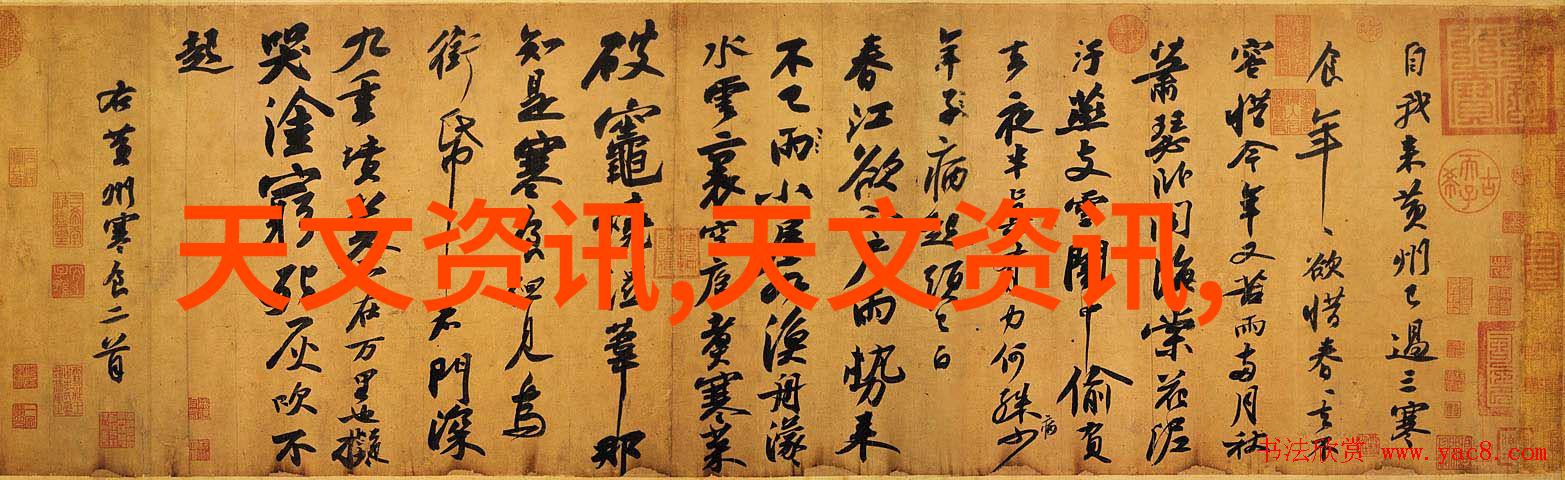 自我来黄州已過三寒
食年、欲惜春、去不
容惜今年又苦雨兩月秋
蕭瑟卧聞海棠花泥
汙燕支雪闇中偷負
去夜半真有力何殊少
病
年子病起頭已白
春江欲入户雨勢来
不已雨小屋如漁舟濛
水雲裏空庖煮寒菜
破竈燒濕葦那
知是寒食但見烏
銜帋君門深
九重墳墓在万里也擬
哭塗窮死灰吹不
起
右黄州寒食二首
天文资讯,天文资讯,
书法欣赏 www.yac8.com